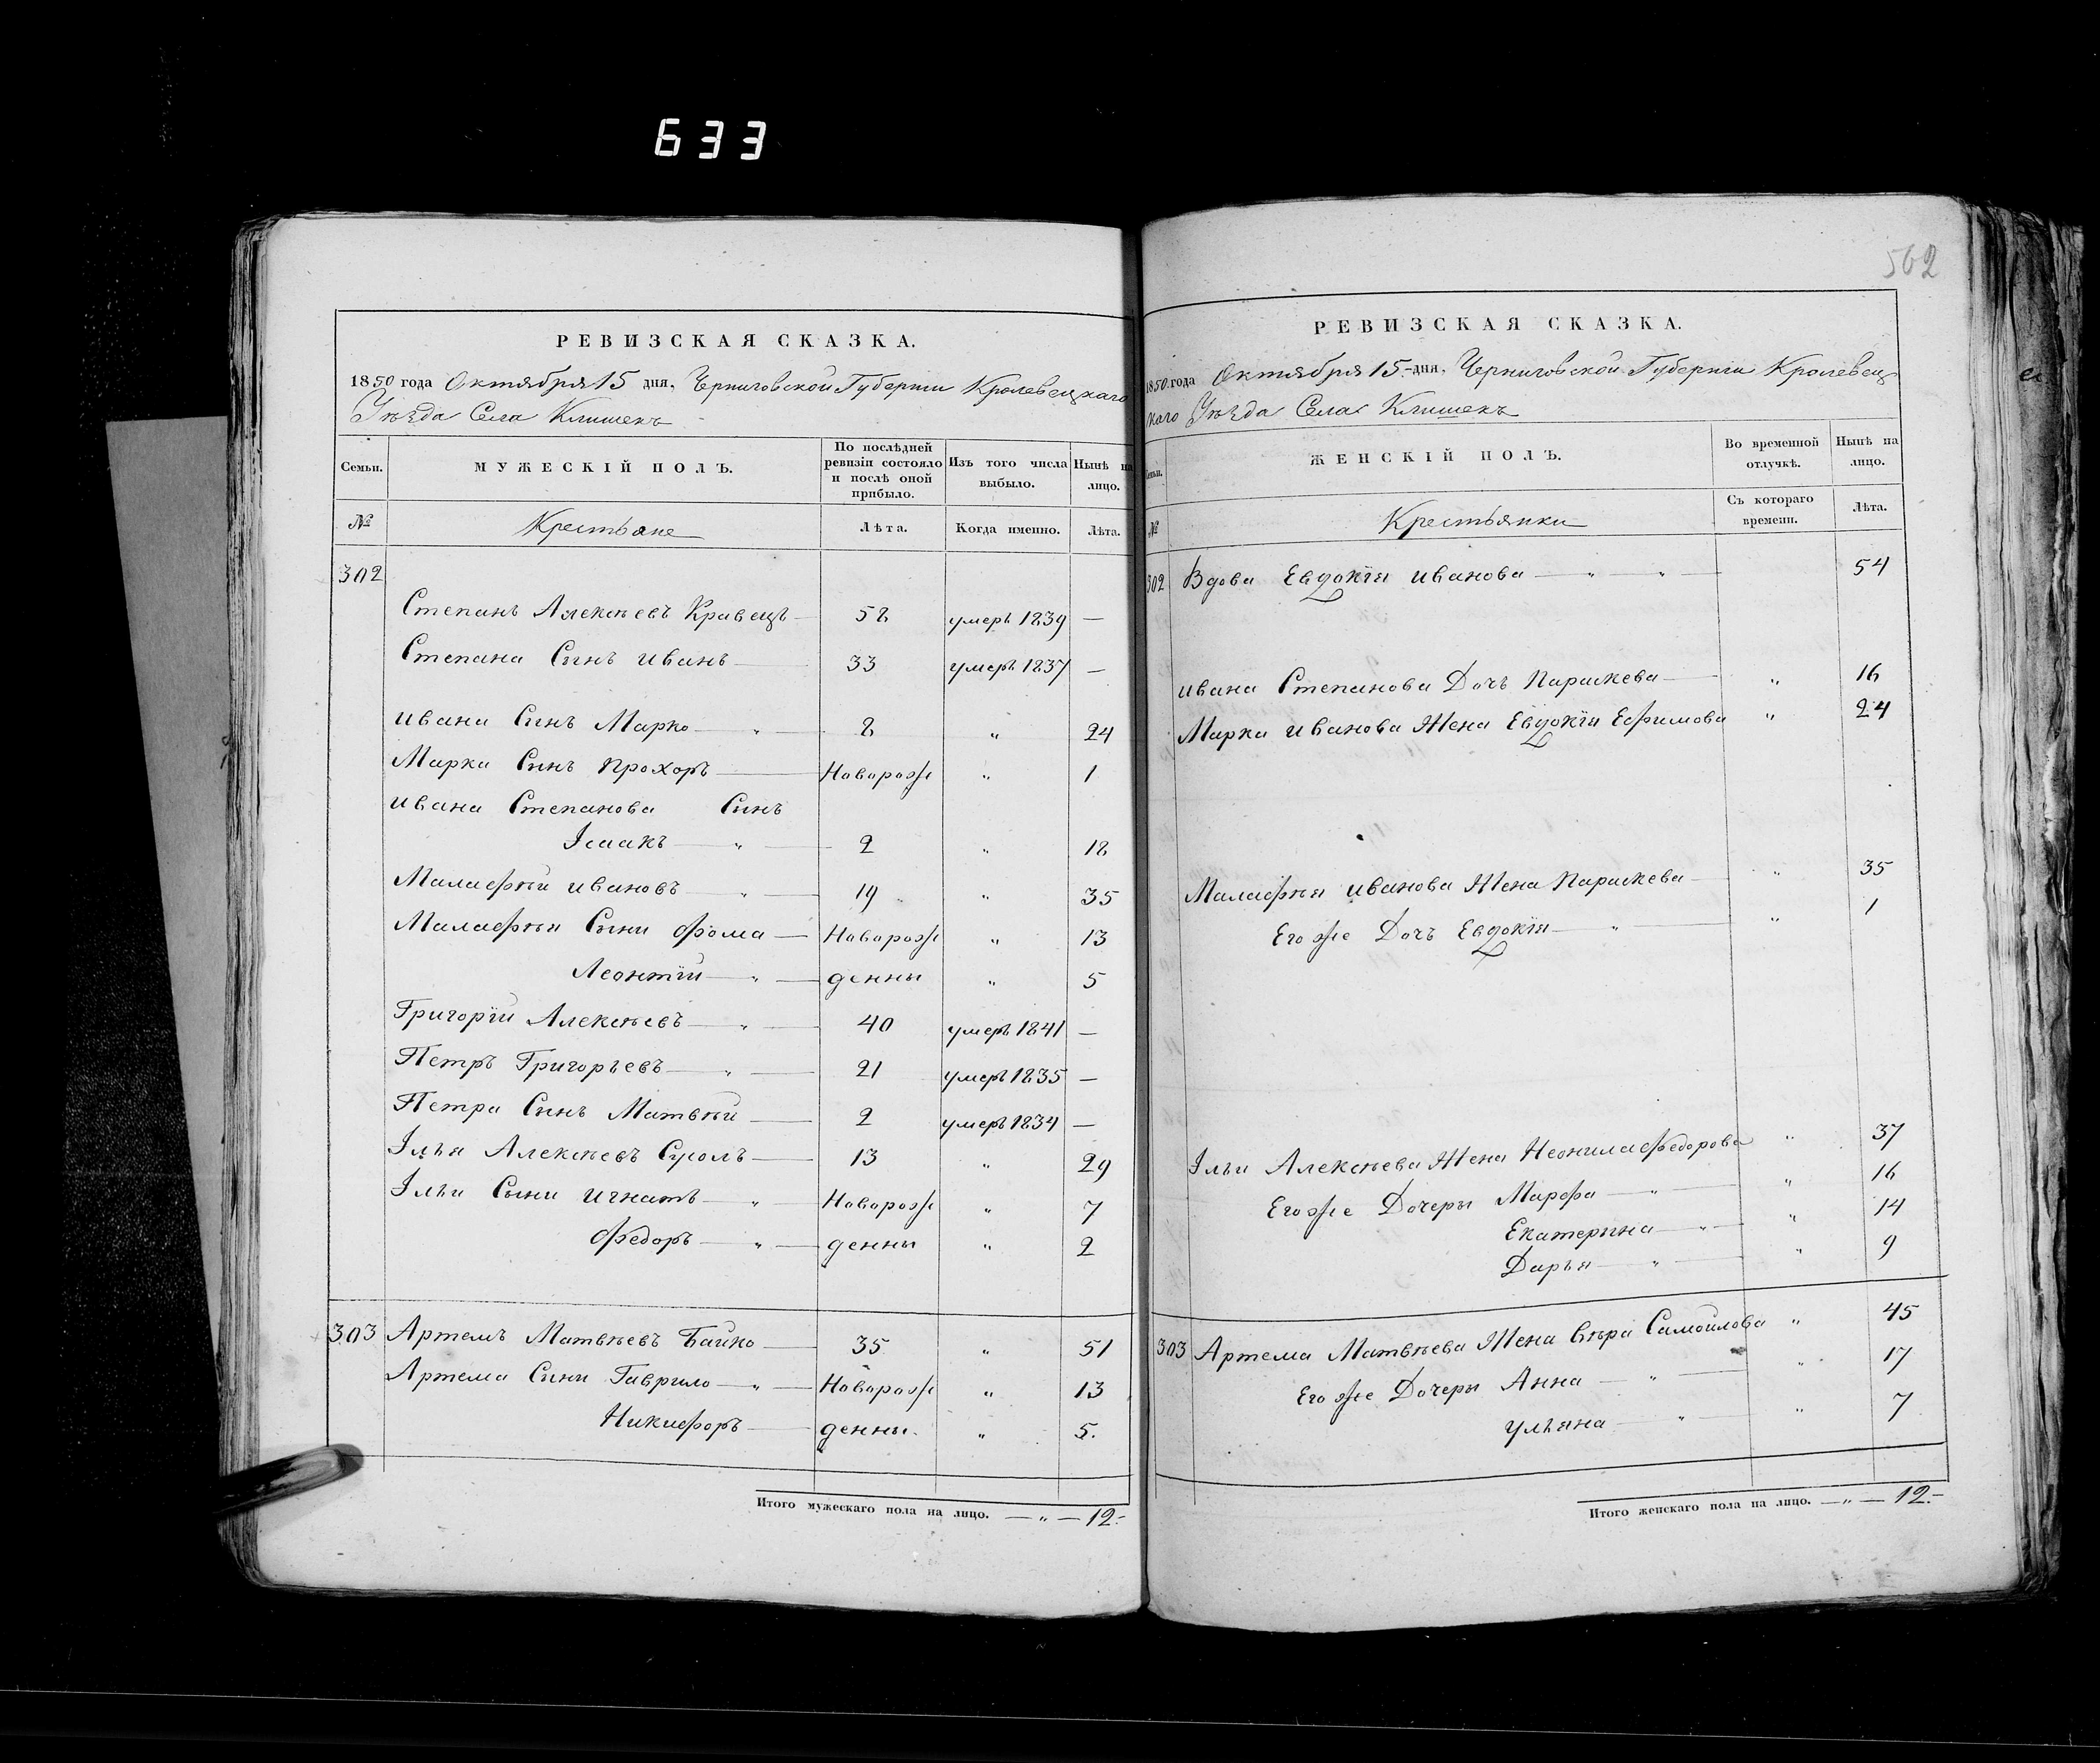 633
562
РЕВИЗСКАЯ СКАЗКА.
1850 года Октября 15 дня, Черниговской Губернии Кролевецкаго
Уѣзда Села Клишекъ
Семьи.
МУЖЕСКІЙ ПОЛЪ.
По послѣдней ревизіи состояло и послѣ оной прибыло.
Изъ того числа выбыло.
Нынѣ на лицо.
№
Крестьяне
Лѣта.
Когда именно.
Лѣта.
302
Степанъ Алексѣевъ Кравецъ — 58 умеръ 1839 —
Степана Сынъ Иванъ — 33 умеръ 1837 —
Ивана Сынъ Марко — " — 8 " 24
Марка Сынъ Прохоръ — Новорож " 1
Ивана Степанова Сынъ
Ісаакъ — " — 2 " 18
Малафѣй Ивановъ — " — 19 " 35
Малафѣя Сыни Фома — Новорож " 13
Леонтій — " — денны " 5
Григорій Алексѣевъ — " — 40 умеръ 1841 —
Петръ Григорьевъ — " — 21 умеръ 1835 —
Петра Сынъ Матвѣй — 2 умеръ 1834 —
Ілья Алексѣевъ — 13 " 29
Ільи Сыни Игнатъ — " — Новорож " 7
Федоръ — " — денны " 2
303 Артемъ Матвѣевъ Байко — 35 " 51
Артема Сыни Гаврило — " — Новорож " 13
Никифоръ — денны. " 5.
Итого мужескаго пола на лицо. — " — 12.-
РЕВИЗСКАЯ СКАЗКА.
1850. года Октября 15.- дня, Черниговской Губерніи Кролевец
каго Уѣзда Села Клишекъ
Семьи.
ЖЕНСКІЙ ПОЛЪ.
Во временной отлучкѣ.
Нынѣ на лицо.
№
Крестьянки
Съ котораго времени.
Лѣта.
302 Вдова Евдокія Иванова — " " — 54
Ивана Степанова Дочъ Параскева — " 16
Марка Иванова Жена Евдокія Ефимова " 24
Малафѣя Иванова Жена Параскева — " 35
Его же Дочъ Евдокія — " — " 1
Ільи Алексѣева Жена Неонила Федорова " 37
Его же Дочеры Марфа — " — " 16
Екатерына — " — " 14
Дарья — " — " 9
303 Артема Матвѣева Жена Вѣра Самойлова " 45
Его же Дочеры Анна — " — " 17
Ульяна — " — " 7
Итого женскаго пола на лицо. — " — 12.-